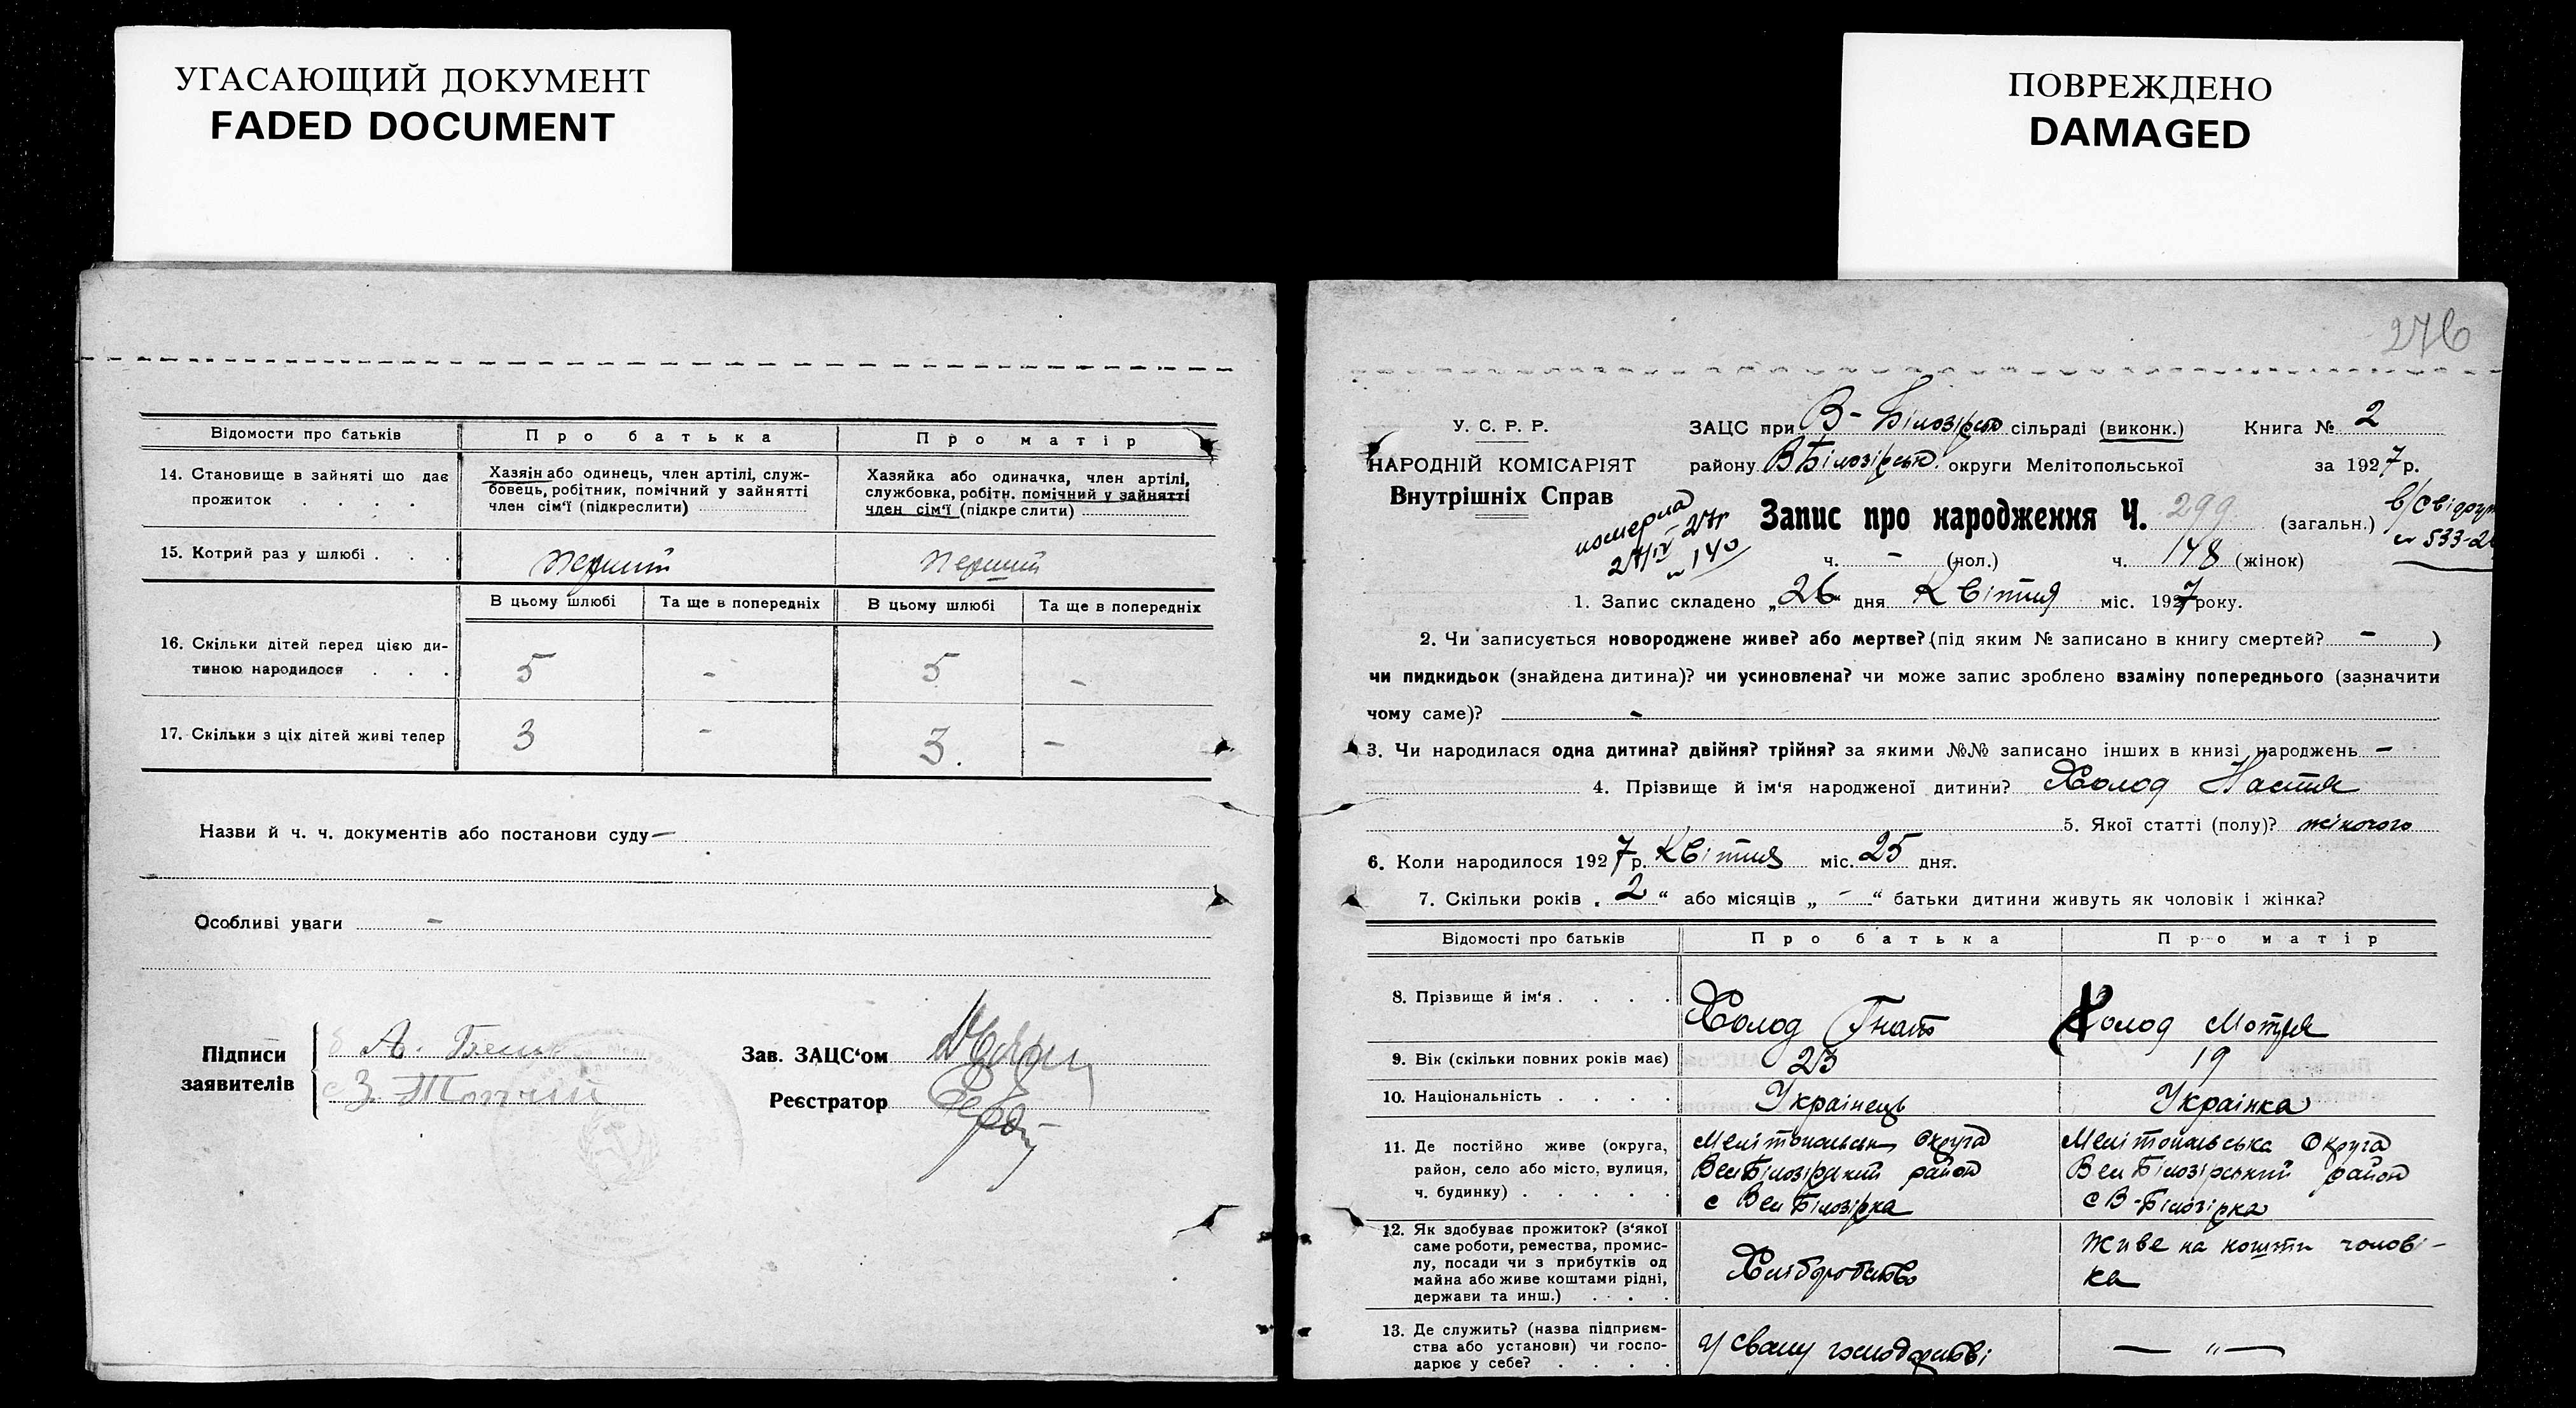 УГАСАЮЩИЙ ДОКУМЕНТ
FADED DOCUMENT
ПОВРЕЖДЕНО
DAMAGED
Відомости про батьків Про батька Про матір
14. Становище в зайняті що дає прожиток . . . .
Хазяін або одинець, член артілі, служ-
бовець, робітник, помічний у зайнятті
член сім'ї (підкреслити)
Хазяйка або одиначка, член артілі,
службовка, робітн. помічний у зайнятті
член сім'ї (підкреслити)
15. Котрий раз у шлюбі . . . перший перший
В цьому шлюбі Та ще в попередніх В цьому шлюбі Та ще в попередніх
16. Скільки дітей перед цією ди-
тиною народилося . . . 5 - 5 -
17. Скільки з ціх дітей живі тепер 3 - 3. -
Назви й ч. ч. документів або постанови суду —
Особливі уваги -
Підписи
заявителів
А.
З. Топчій
Зав. ЗАЦС'ом
Реєстратор
276
У. С. Р. Р.
НАРОДНІЙ КОМІСАРІЯТ
Внутрішніх Справ
ЗАЦС при В-Білозірсь сільраді (виконк.) Книга № 2
району ВБілозірськ. округи Мелітопольської за 1927 р.
померла
27/IV 27г
№ 140
Запис про народження Ч. 299 (загальн.)
№ 533-2
ч. - (чол.) ч. 148 (жінок)
1. Запис складено „26“ дня Квітня міс. 1927 року.
2. Чи записується новороджене живе? або мертве? (під яким № записано в книгу смертей? - )
чи пидкидьок (знайдена дитина)? чи усиновлена? чи може запис зроблено взаміну попереднього (зазначити
чому саме)? -
3. Чи народилася одна дитина? двійня? трійня? за якими №№ записано інших в книзі народжень -
4. Прізвище й ім'я народженої дитини? Холод Настя
5. Якої статті (полу)? жіночого
6. Коли народилося 1927 р. Квітня міс. 25 дня.
7. Скільки років „2“ або місяців „-“ батьки дитини живуть як чоловік і жінка?
Відомості про батьків Про батька Про матір
8. Прізвище й ім'я . . . . Холод Гнат Холод Мотря
9. Вік (скільки повних років має) 25 19
10. Національність . . . . Українець Українка
11. Де постійно живе (округа,
район, село або місто, вулиця,
ч. будинку) . . . . .
Мелітопольськ Округа
Вел Білозірський район
с Вел Білозірка
Мелітопольська Округа
Вел Білозірський район
с В-Білозірка
12. Як здобуває прожиток? (з'якої
саме роботи, ремества, промис-
лу, посади чи з прибутків од
майна або живе коштами рідні,
держави та инш.) . . . .
Хліборобство
Живе на кошти чолові-
ка
13. Де служить? (назва підприєм-
ства або установи) чи госпо-
дарює у себе? . . . .
У свому господарстві
— „ —